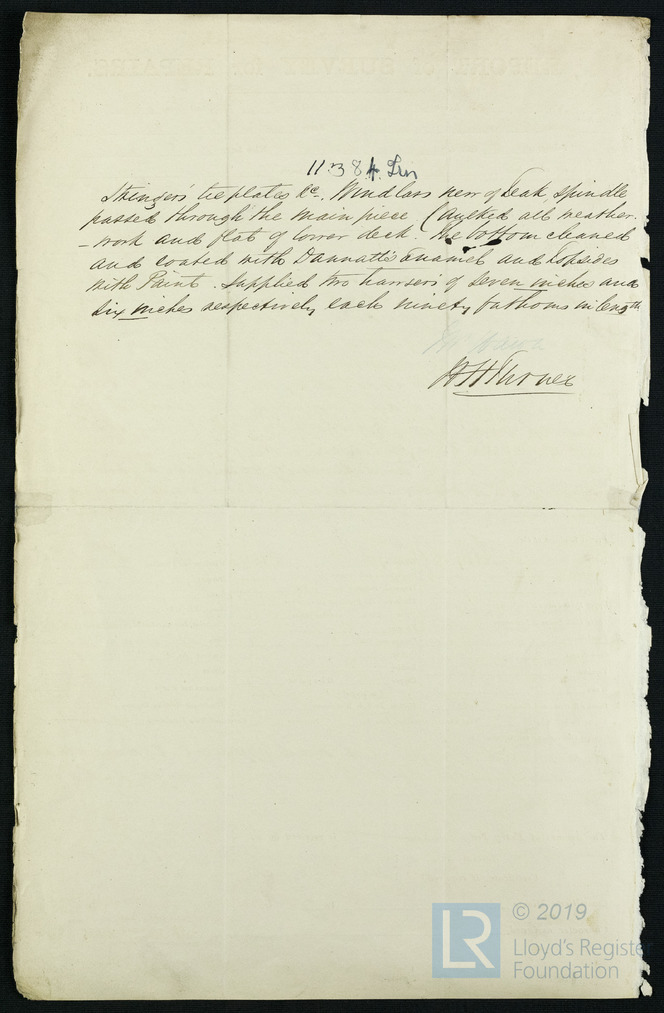 11384 Lrn
Stringers tie plates &c. Windlass new of Teak, spindle
passed through the main piece Caulked all weather.
-work and flat of lower deck. The bottom cleaned
and coated with Dannatts enamel and Topsides
with Paint. Supplied two hawsers of seven inches and
six inches respectively each ninety fathoms in length
W H Turner
© 2019
LR
Lloyd's Register
Foundation